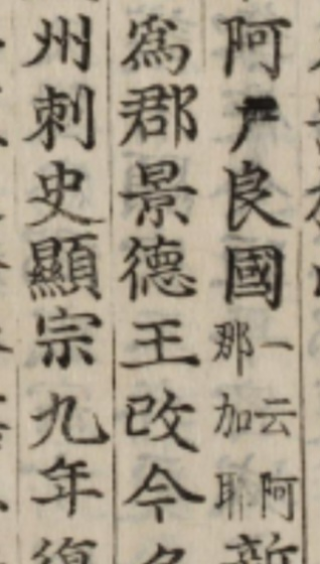 阿尸良國一云阿那加耶新
爲郡景德王改今名
州刺史顯宗九年復